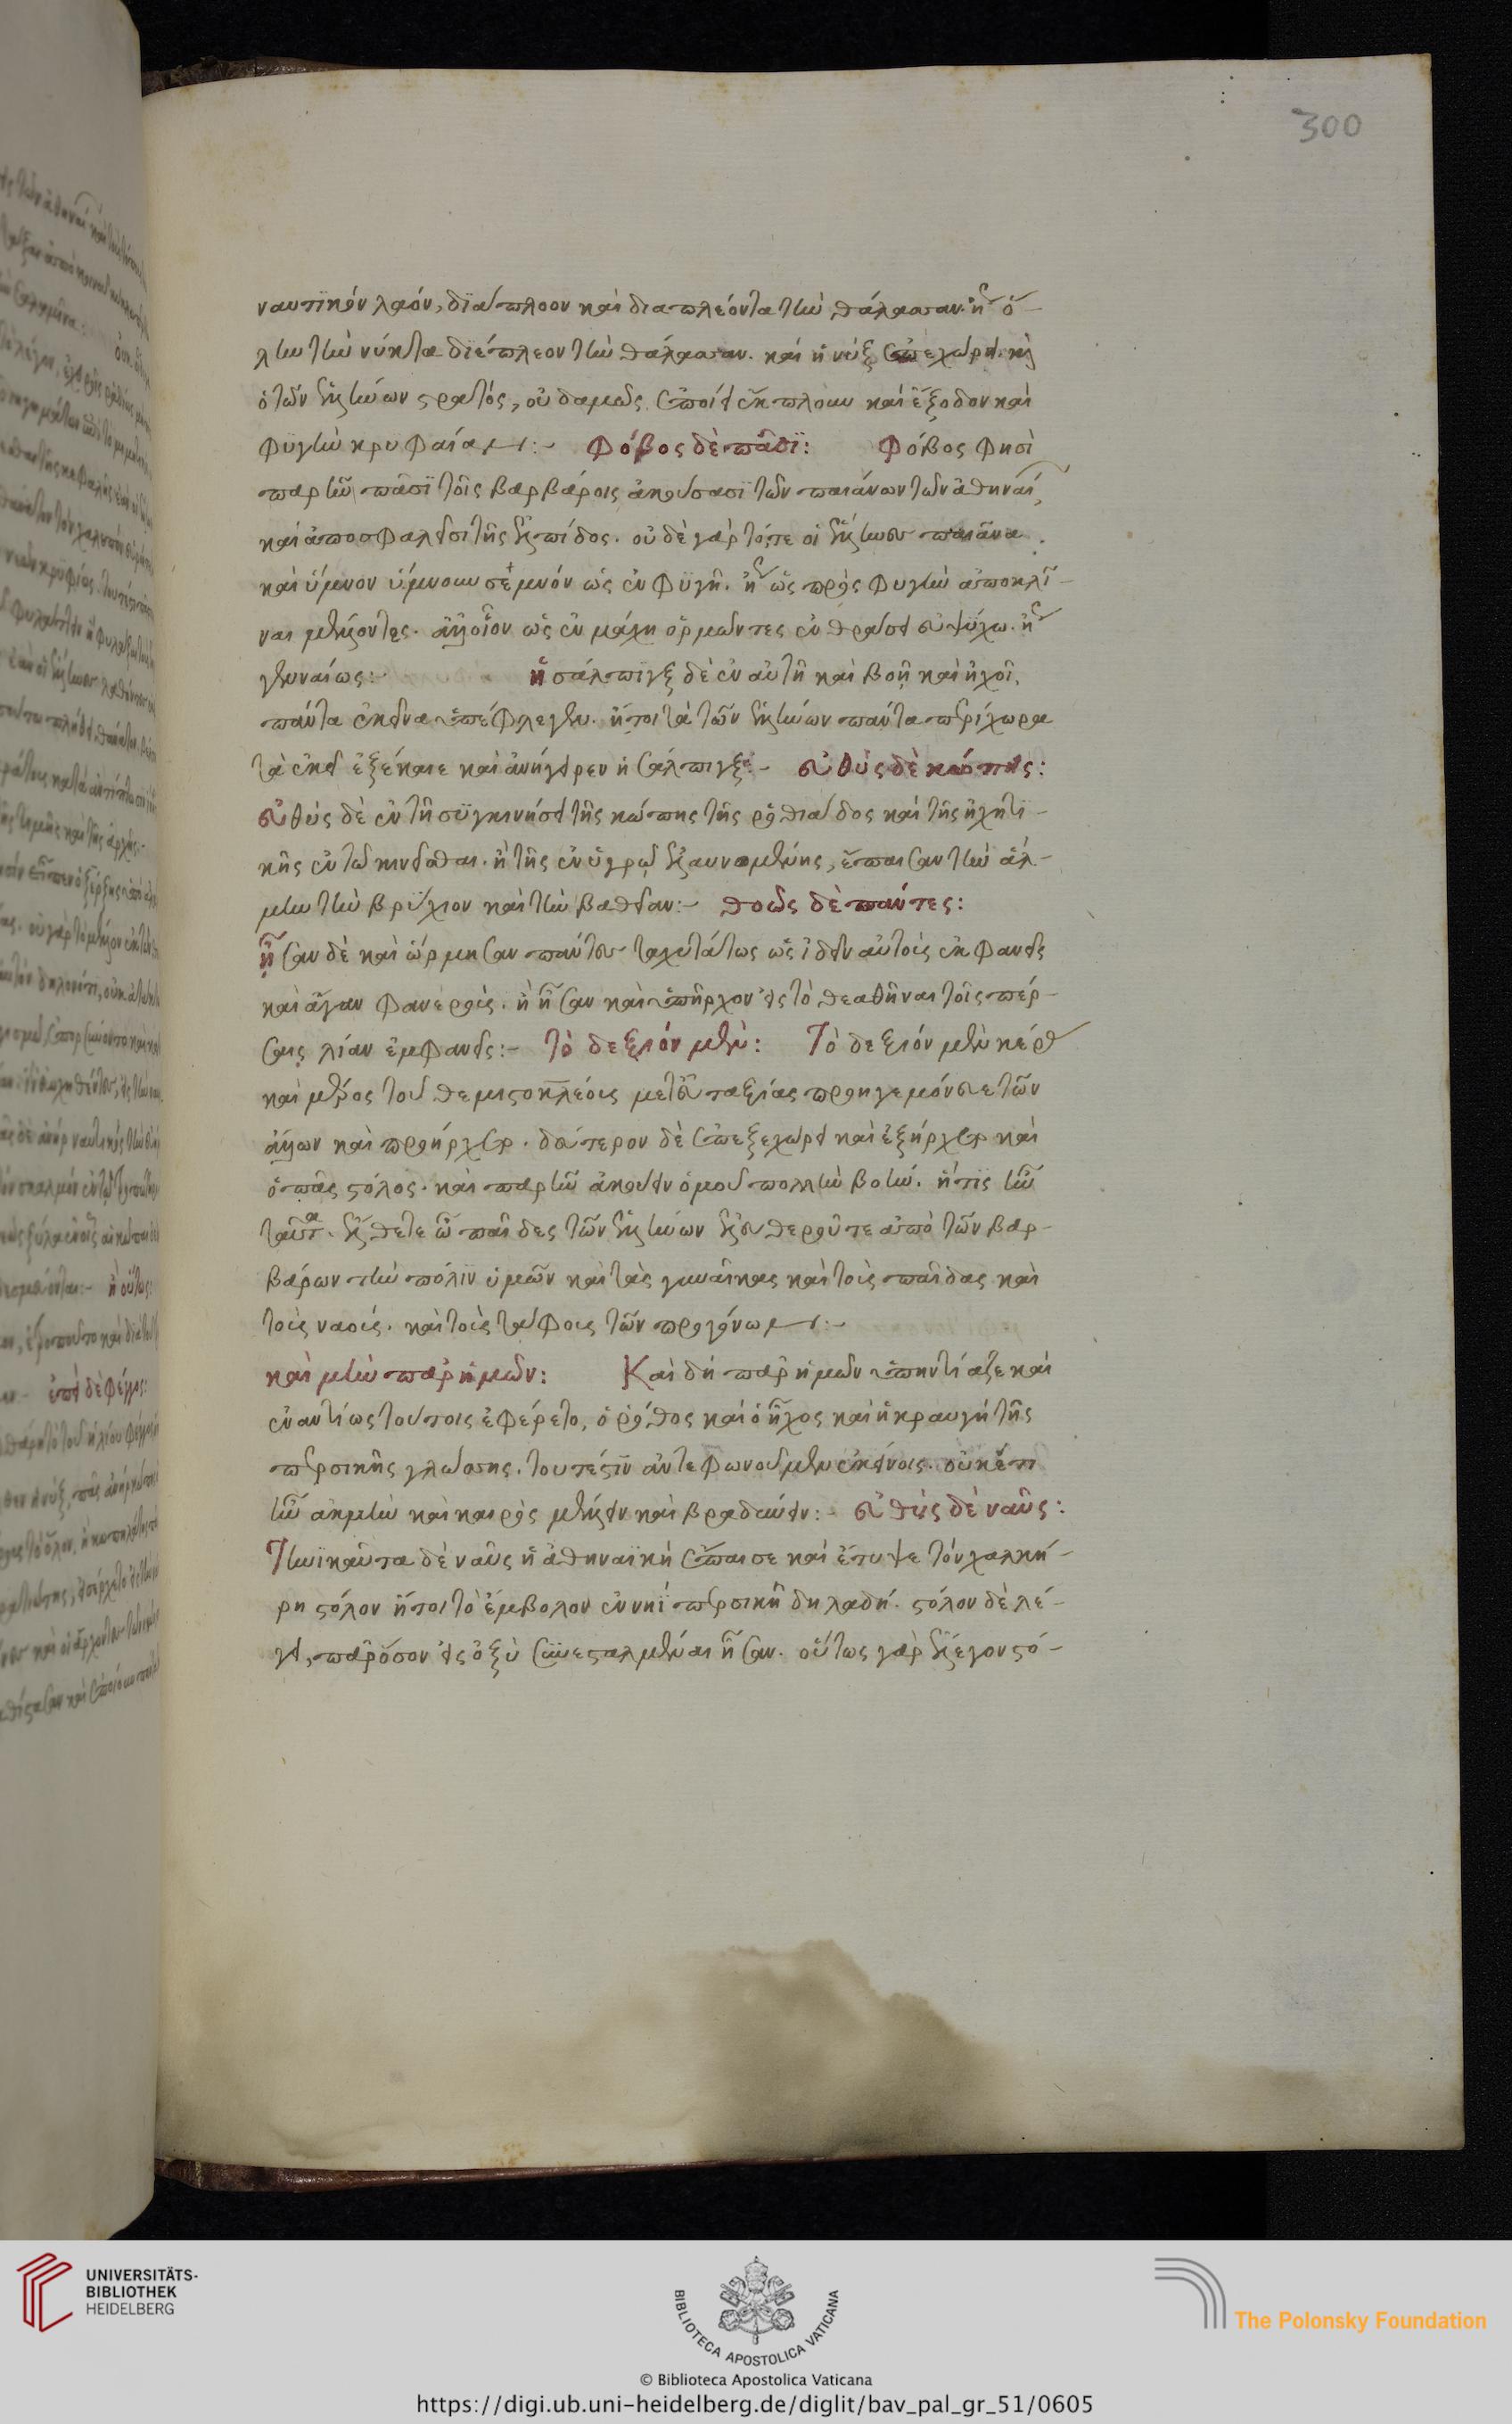 300
ναυτϊκὸν λαόν, δϊάπλοον καὶ διαπλέοντα τὴν θάλασσαν. ἢ ὅ-
λην τὴν νύκτα διέπλεον τὴν θάλασσαν. καὶ ἡ νὺξ ἐχώρει. καὶ
ὁ τῶν ἑλλήνων στρατός, οὐδαμῶς ἐποίει ἔκπλουν καὶ ἔξοδον καὶ
φυγὴν κρυφαίαν:- Φόβος δὲ πᾶσϊ: Φόβος φησὶ
παρῆν πᾶσϊ τοῖς βαρβάροις ἀκούσασϊ τῶν παιάνων τῶν ἀθηναί
καὶ ἀποσφαλεῖσι τῆς ἐλπίδος. οὐδὲ γὰρ τότε οἱ ἕλληνες παιᾶνα
καὶ ὕμνον ὕμνουν σεμνόν ὡς ἐν φϋγῆ. ἢ ὡς πρὸς φυγὴν ἀποκλῖ-
ναι μέλλοντες. ἀλλ' οἷον ὡς ἐν μάχη ὁρμῶντες ἐν θράσει εὐψύχω. ἢ
γενναίως: ἡ σάλπϊγξ δὲ ἐν αὐτῆ καὶ βοῆ καὶ ἠχοῖ,
πάντα ἐκεῖνα ἐπέφλεγεν. ἤτοι τὰ τῶν ἑλλήνων πάντα περίχωρα
τὰ ἐκεῖ ἐξέκαιε καὶ ἀνήγειρεν ἡ σάλπιγξ:- εὐθὺς δὲ κώπης:
εὐθὺς δὲ ἐν τῆ συγκινήσει τῆς κώπης τῆς ῥοθιάδος καὶ τῆς ἠχητι-
κῆς ἐν τῶ κινεῖσθαι. ἢ τῆς ἐν ὑγρῶ ἐλαυνομένης, ἔπαισαν τὴν ἅλ-
μην τὴν βρύχιον καὶ τὴν βαθεῖαν:- θοῶς δὲ πάντες:
ἦσαν δὲ καὶ ὥρμησαν πάντες ταχυτάτως ὡς ἰδεῖν αὐτοὺς ἐκφανεῖς
καὶ ἄγαν φανερούς. ἢ ἦσαν καὶ ὑπῆρχον εἰς τὸ θεαθῆναι τοῖς πέρ-
σαις λίαν ἐμφανεῖς:- τὸ δεξιὸν μὲν: Τὸ δεξιὸν μὲν κέρας
καὶ μέρος τοῦ θεμιστοκλέους μετ' εὐταξίας προηγεμόνευε τῶν
ἄλλων καὶ προήρχετο. δεύτερον δὲ ἐπεξεχώρει καὶ ἐξήρχετο καὶ
ὁ πᾶς στόλος. καὶ παρῆν ἀκούειν ὁμοῦ πολλὴν βοήν. ἥτις ἦν
ταῦτα. ἔλθετε ὦ παῖδες τῶν ἑλλήνων ἐλευθεροῦτε ἀπὸ τῶν βαρ-
βάρων τὴν πόλϊν ὑμῶν καὶ τὰς γυναῖκας καὶ τοὺς παῖδας καὶ
τοὺς ναούς. καὶ τοὺς τάφους τῶν προγόνων:-
καὶ μὴν παρ' ἡμῶν: Καὶ δὴ παρ' ἡμῶν ὑπηντίαζε καὶ
ἐναντίως τούτοις ἐφέρετο, ὁ ῥόθος καὶ ὁ ἦχος καὶ ἡ κραυγὴ τῆς
περσικῆς γλώσσης. τουτέστιν ἀντεφωνοῦμεν ἐκείνοις. οὐκ ἔτι
ἦν ἀκμὴν καὶ καιρὸς μέλλειν καὶ βραδύνειν:- εὐθὺς δὲ ναῦς:
Τηνϊκαῦτα δὲ ναῦς ἡ ἀθηναϊκὴ ἔπαισε καὶ ἔτυψε τὸν χαλκή-
ρη στόλον ἤτοι τὸ ἔμβολον ἐν νηῒ περσικῆ δηλαδή. στόλον δὲ λέ-
γει, παρόσον εἰς ὀξὺ συνεσταλμέναι ἦσαν. οὕτως γὰρ ἔλεγον στό-
UNIVERSITÄTS-
BIBLIOTHEK
HEIDELBERG
BIBLIOTECA APOSTOLICA VATICANA
The Polonsky Foundation
© Biblioteca Apostolica Vaticana
https://digi.ub.uni-heidelberg.de/diglit/bav_pal_gr_51/0605